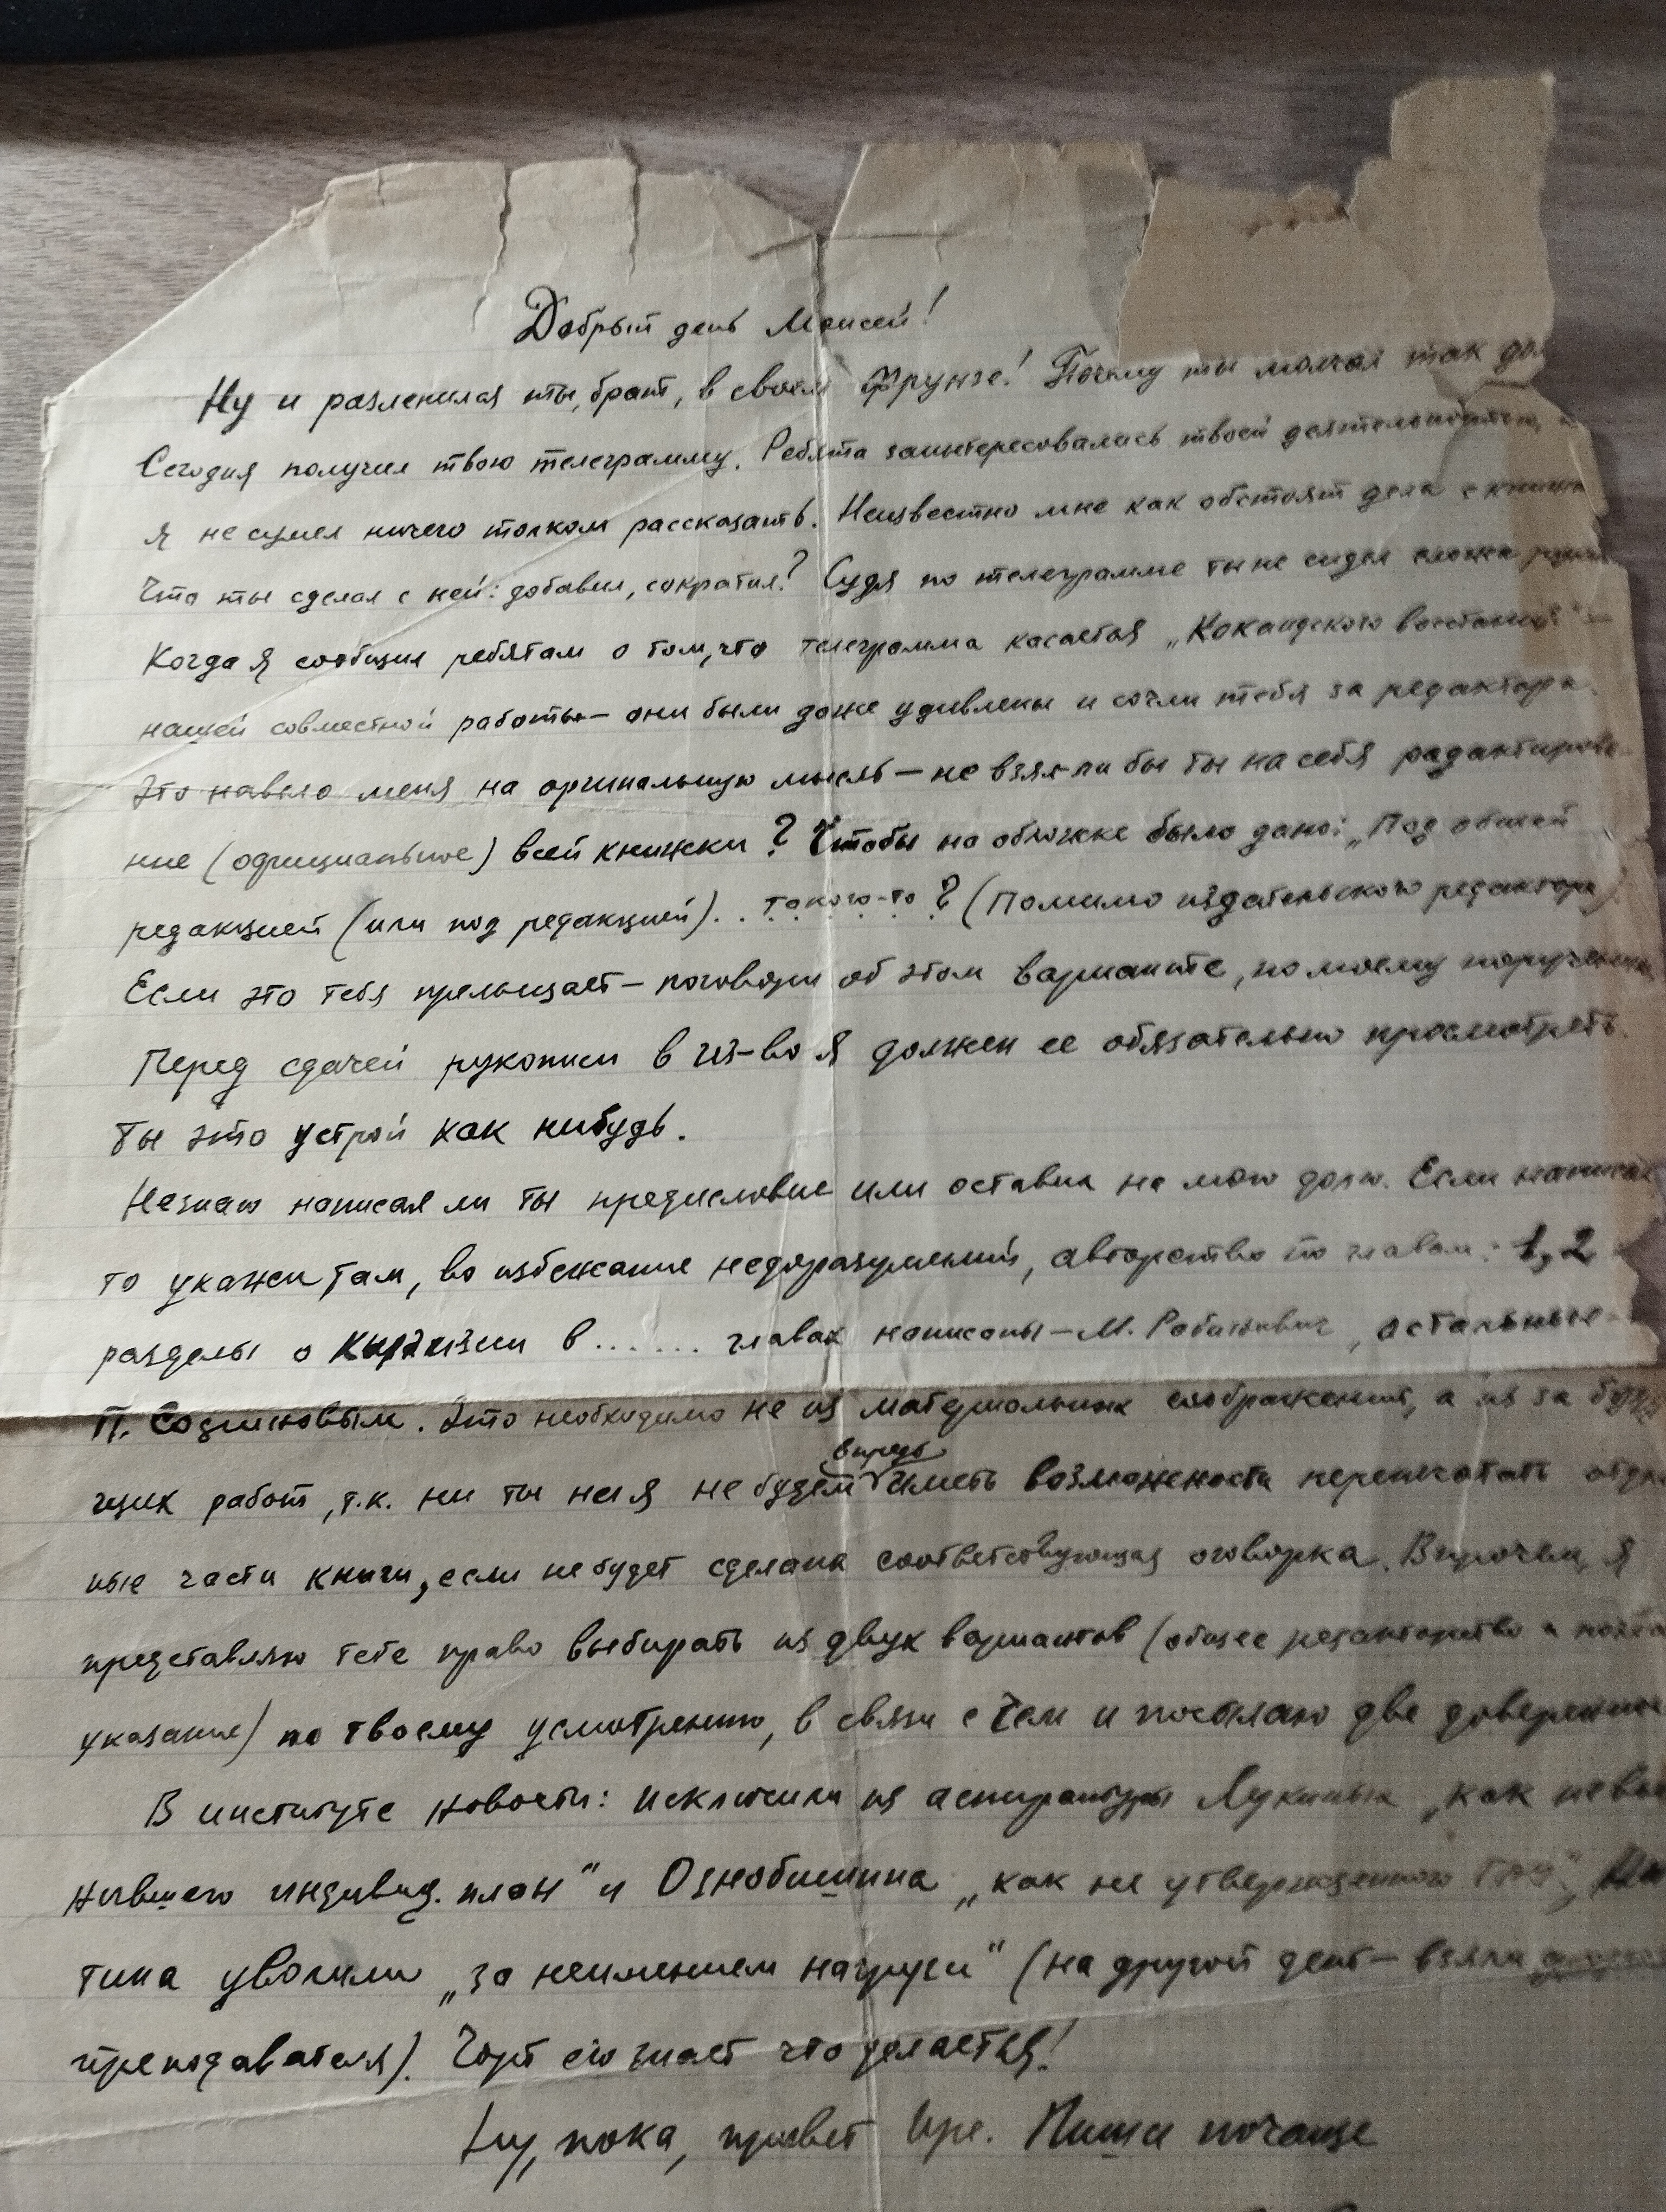 Добрый день Моисей!
Ну и разленился ты, брат, в своем Фрунзе! Почему ты молчал так дол
Сегодня получил твою телеграмму. Ребята заинтересовались твоей деятельностью, и
я не сумел ничего толком рассказать. Неизвестно мне как обстоят дела с книж
Что ты сделал с ней: добавил, сократил? Судя по телеграмме ты не сидел сложа руки
Когда я сообщил ребятам о том, что телеграмма касается „Кокандского восстания" —
нашей совместной работы — они были даже удивлены и сочли тебя за редактора.
Это навело меня на оригинальную мысль — не взял ли бы ты на себя радактирова-
ние (официальное) всей книжки? Чтобы на обложке было дано: „Под общей
редакцией (или под редакцией)... такого-то? (Помимо издательского редактора)
Если это тебя прельщает — поговори об этом варианте, по моему поручению
Перед сдачей рукописи в из-во я должен ее обязательно просмотреть.
Ты это устрой как нибудь.
Незнаю написал ли ты предисловие или оставил на мою долю. Если написал
то укажи там, во избежание недоразумений, авторство по главам: 1, 2
разделы о Киргизии в ...... главах написаны — М. Рабинович, остальные —
П. Созиновым. Это необходимо не из материальных соображений, а из за буду
щих работ, т.к. ни ты ни я не будем впредь иметь возможности перепечатать отдел
ные части книги, если не будет сделана соответствующая оговорка. Впрочем, я
представляю тебе право выбирать из двух вариантов (общее редакторство и
указание) по твоему усмотрению, в связи с чем и посылаю две доверенно
В институте новости: исключили из аспирантуры Лукиных „как невы
нившего индивид. план" и Ознобишина „как не утвержденного
тина уволили „за неимением нагрузки" (на другой день — взяли другого
преподавателя). Чорт его знает что делается!
Ну, пока, привет Ире. Пиши почаще